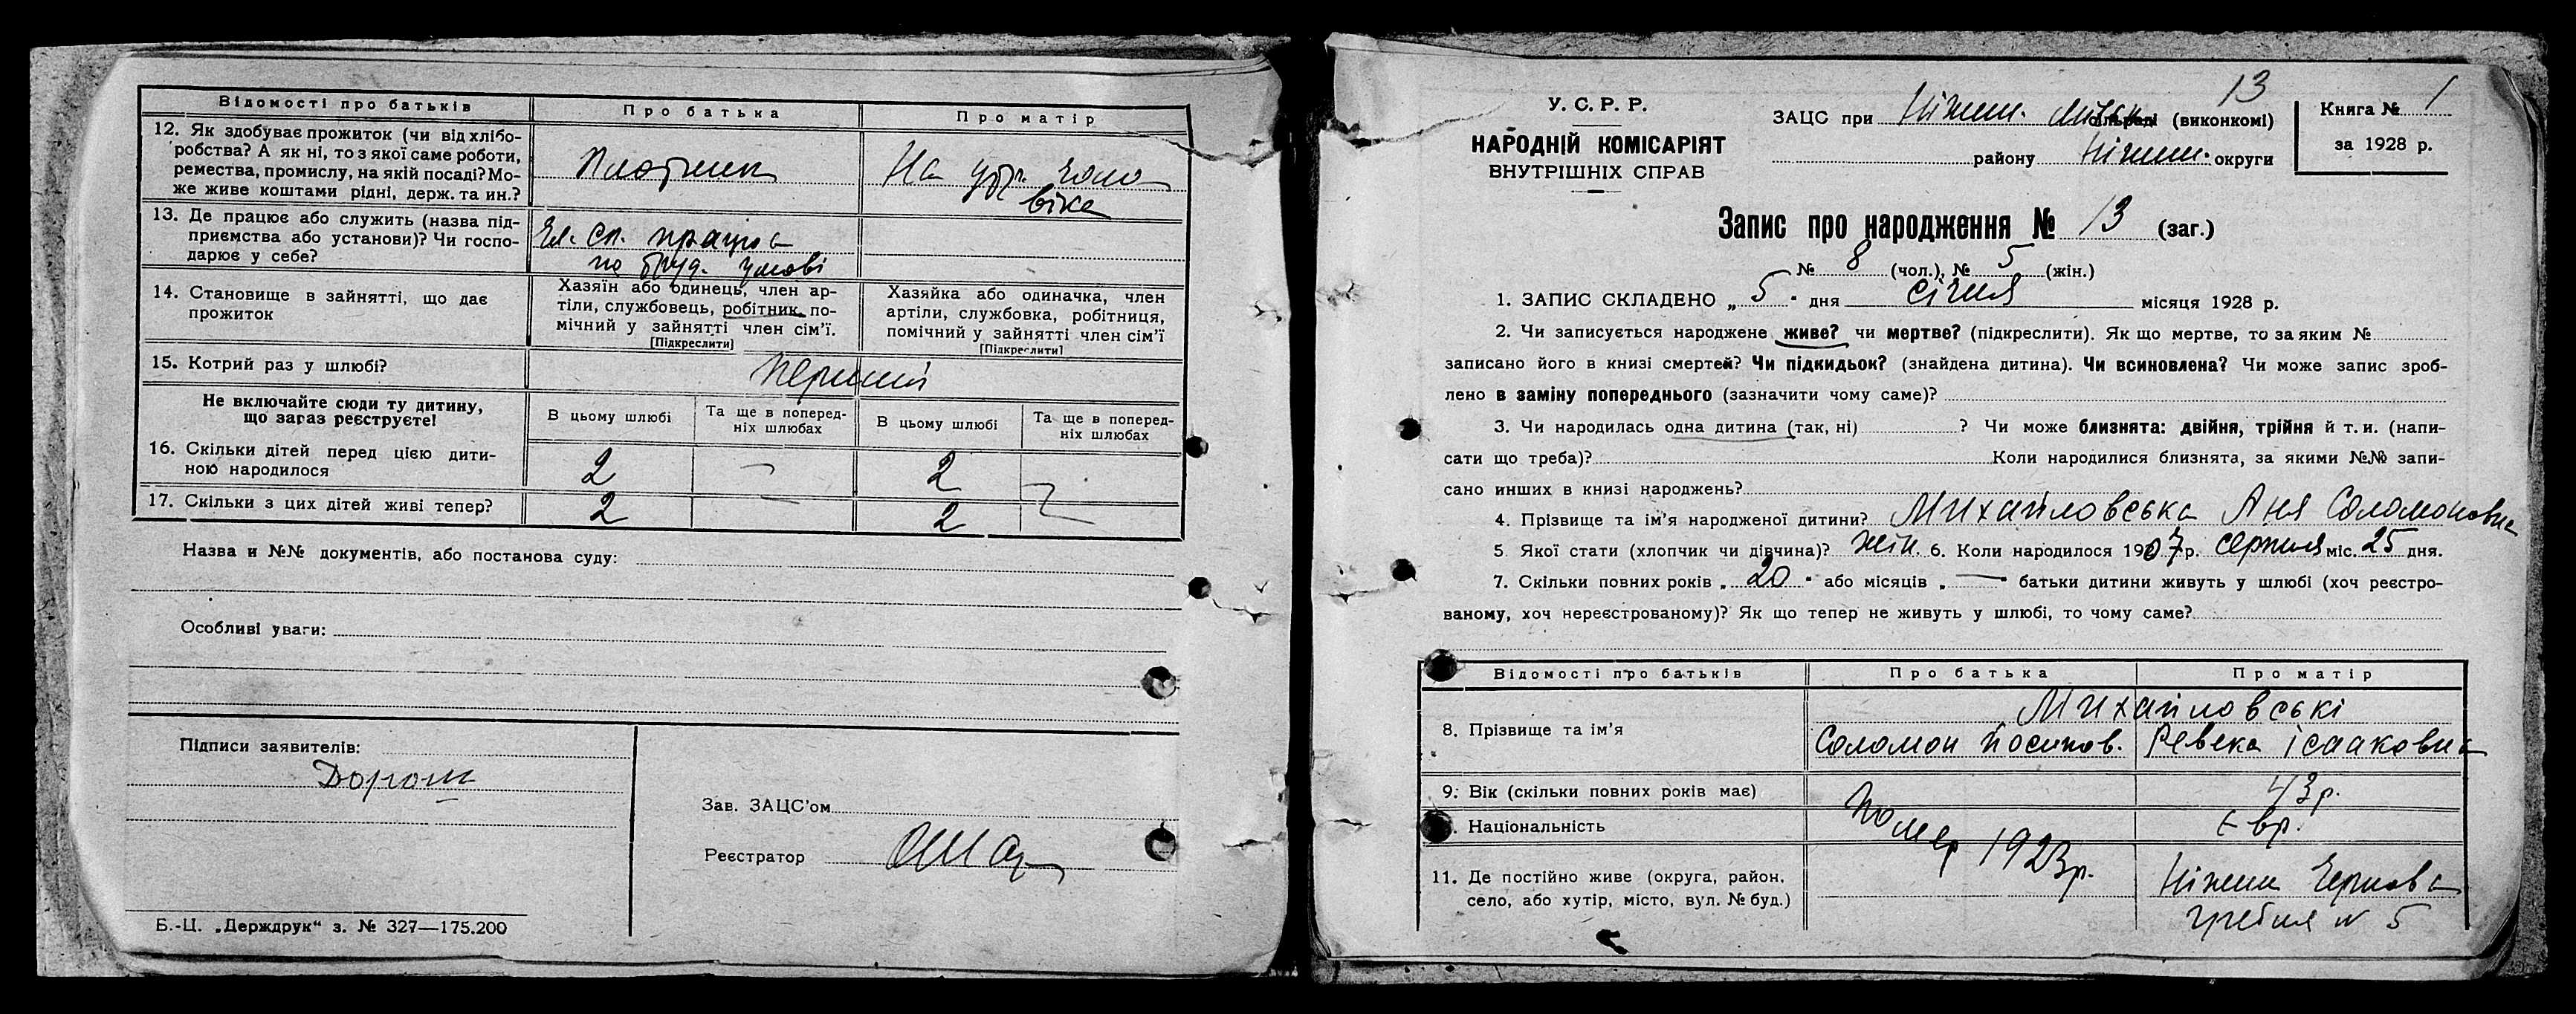 Відомості про батьків
Про батька
Про матір
12. Як здобуває прожиток (чи від хлібо-
робства? А як ні, то з якої саме роботи,
ремества, промислу, на якій посаді? Мо-
же живе коштами рідні, держ. та ин.?
Плотник
На утр. чоло
віка
13. Де працює або служить (назва під-
приємства або установи)? Чи госпо-
дарює у себе?
Чл. сп. працює
по труд. умові
14. Становище в зайнятті, що дає
прожиток
Хазяїн або одинець, член ар-
тіли, службовець, робітник, по-
мічний у зайнятті член сім'ї.
[Підкреслити]
Хазяйка або одиначка, член
артіли, службовка, робітниця,
помічний у зайнятті член сім'ї
[Підкреслити]
15. Котрий раз у шлюбі?
перший
Не включайте сюди ту дитину,
що зараз реєструєте!
В цьому шлюбі
Та ще в поперед-
ніх шлюбах
В цьому шлюбі
Та ще в поперед-
ніх шлюбах
16. Скільки дітей перед цією дити-
ною народилося
2 — 2
17. Скільки з цих дітей живі тепер?
2 2
Назва и №№ документів, або постанова суду:
Особливі уваги:
Підписи заявителів:
Дорош
Зав. ЗАЦС'ом
Реєстратор
Б.-Ц. „Держдрук“ з. № 327—175.200
13
У. С. Р. Р.
НАРОДНІЙ КОМІСАРІЯТ
ВНУТРІШНІХ СПРАВ
ЗАЦС при Ніжин. сільраді (виконкомі)
району Ніжин. округи
Книга № 1
за 1928 р.
Запис про народження № 13 (заг.)
№ 8 (чол.), № 5 (жін.)
1. ЗАПИС СКЛАДЕНО „ 5 " дня січня місяця 1928 р.
2. Чи записується народжене живе? чи мертве? (підкреслити). Як що мертве, то за яким №
записано його в книзі смертей? Чи підкидьок? (знайдена дитина). Чи всиновлена? Чи може запис зроб-
лено в заміну попереднього (зазначити чому саме)?
3. Чи народилась одна дитина (так, ні) ? Чи може близнята: двійня, трійня й т. и. (напи-
сати що треба)? Коли народилися близнята, за якими №№ запи-
сано инших в книзі народжень?
4. Прізвище та ім'я народженої дитини? Михайловська Аня Соломоновна
5. Якої стати (хлопчик чи дівчина)? жін. 6. Коли народилося 1907 р. серпня міс. 25 дня.
7. Скільки повних років „ 20 " або місяців „ — " батьки дитини живуть у шлюбі (хоч реєстро-
ваному, хоч нереєстрованому)? Як що тепер не живуть у шлюбі, то чому саме?
Відомості про батьків
Про батька
Про матір
8. Прізвище та ім'я
Михайловські
Соломон Йосипов.
Ревека Ісааковна
9. Вік (скільки повних років має)
43 р.
Національність
Євр.
Помер 1923 р.
11. Де постійно живе (округа, район,
село, або хутір, місто, вул. № буд.)
Ніжин Чернова
гребля № 5